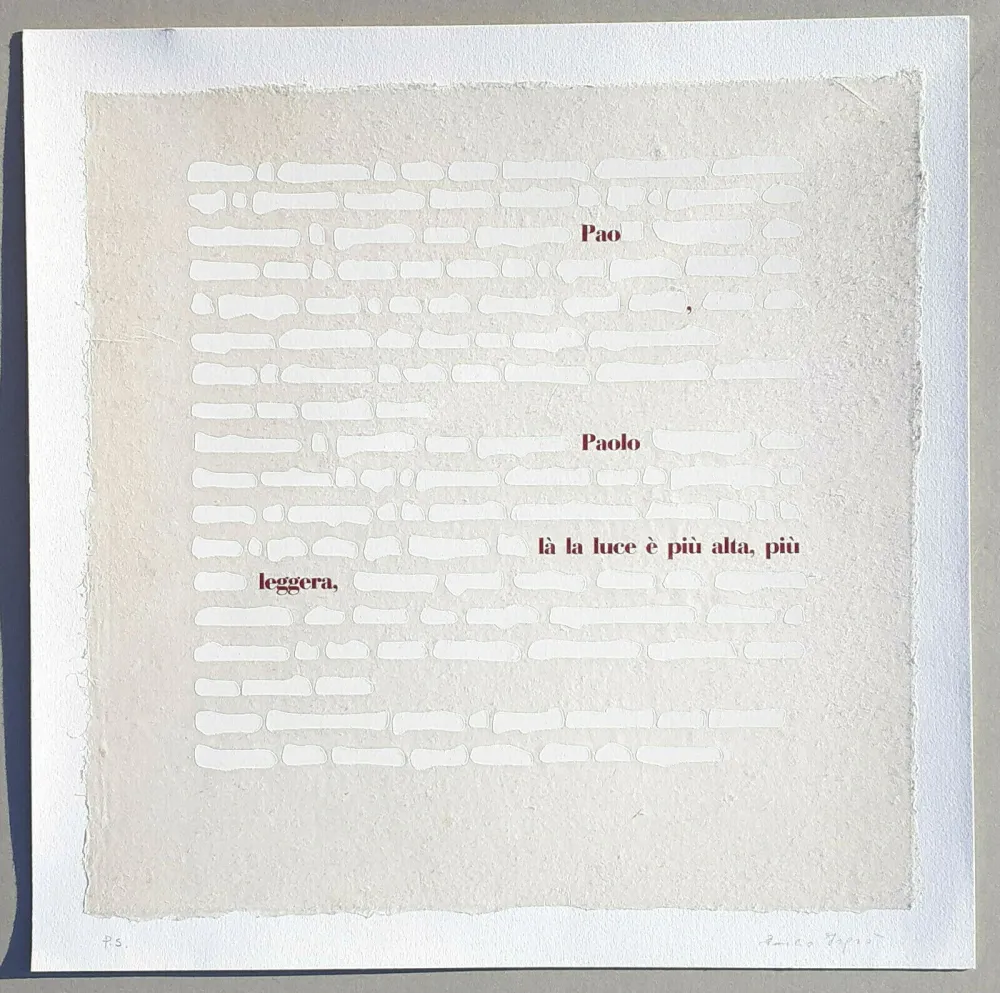 Pao
,
Paolo
là la luce è più alta, più
leggera,
P.S.